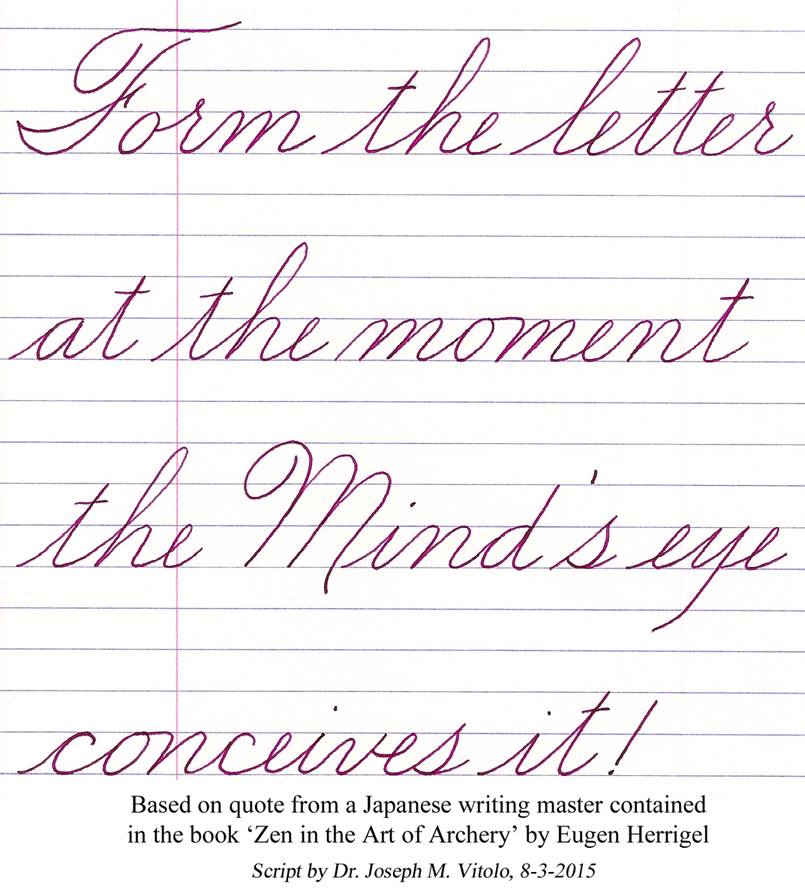 Form the letter
at the moment
the Mind's eye
conceives it!
Based on quote from a Japanese writing master contained
in the book ‘Zen in the Art of Archery’ by Eugen Herrigel
Script by Dr. Joseph M. Vitolo, 8-3-2015